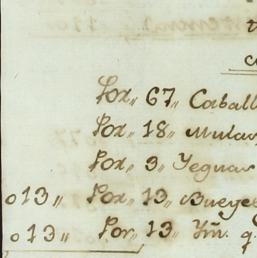 Por,, 67,, Caball
Por,, 18,, Mulas
Por,, 3,, Yeguas
013,, Por,, 13,, Bueye
013,, Por,, 13,, Ym̃. q.